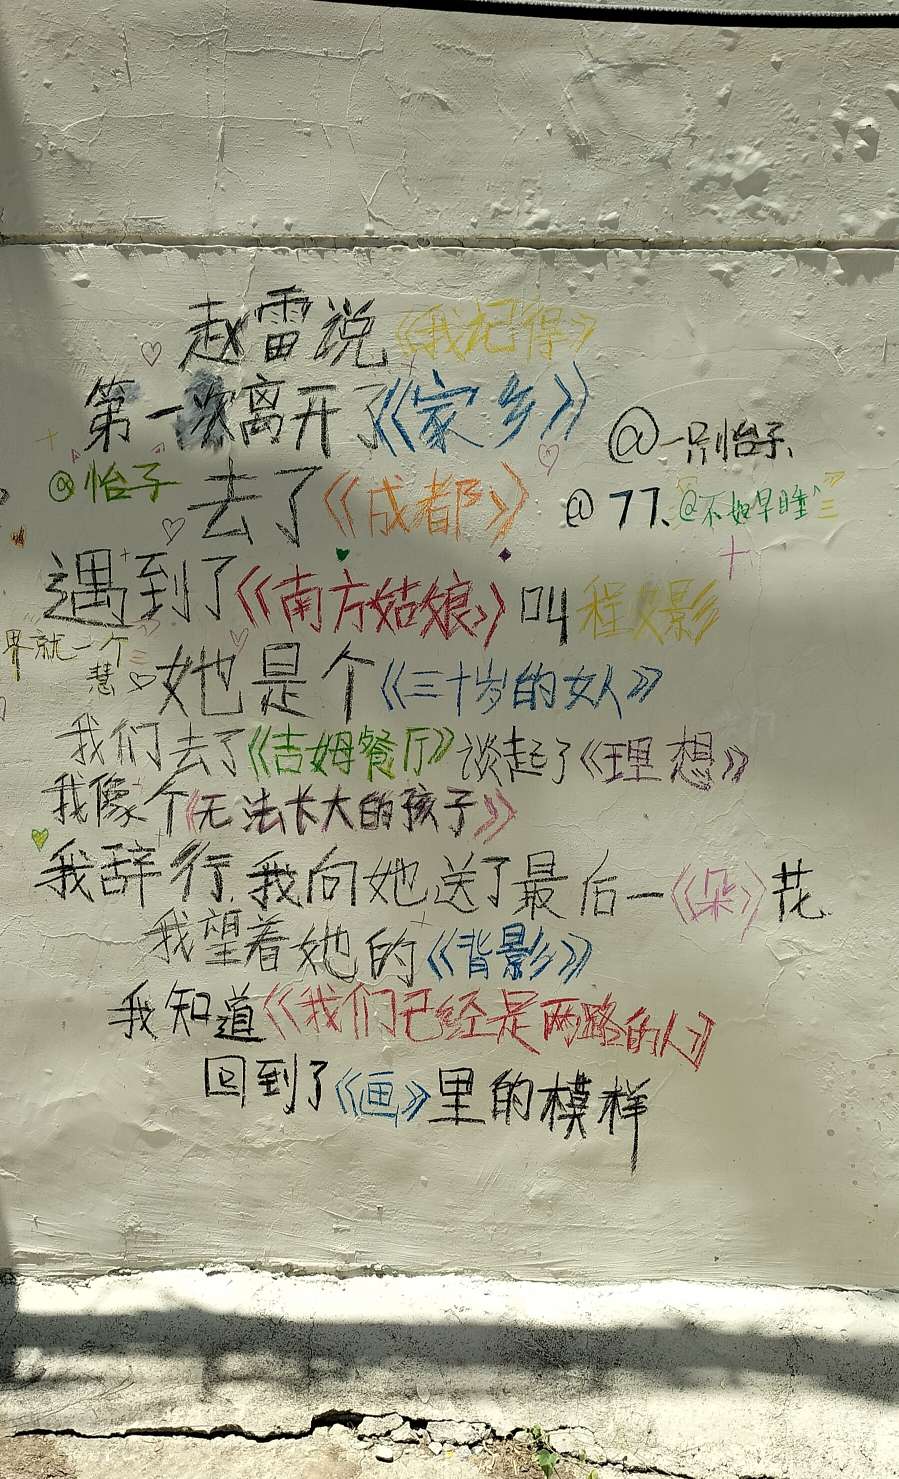 赵雷说《我记得》
第一次离开了《家乡》
@一只怡子、
@怡子
去了《成都》
@77、@不如早睡
遇到了《南方姑娘》叫程义影
界就一个
慧
她是个《三十岁的女人》
我们去了《吉姆餐厅》谈起了《理想》
我像个《无法长大的孩子》
我辞行,我向她送了最后一《朵》花
我望着她的《背影》
我知道《我们已经是两路的人》
回到了《画》里的模样